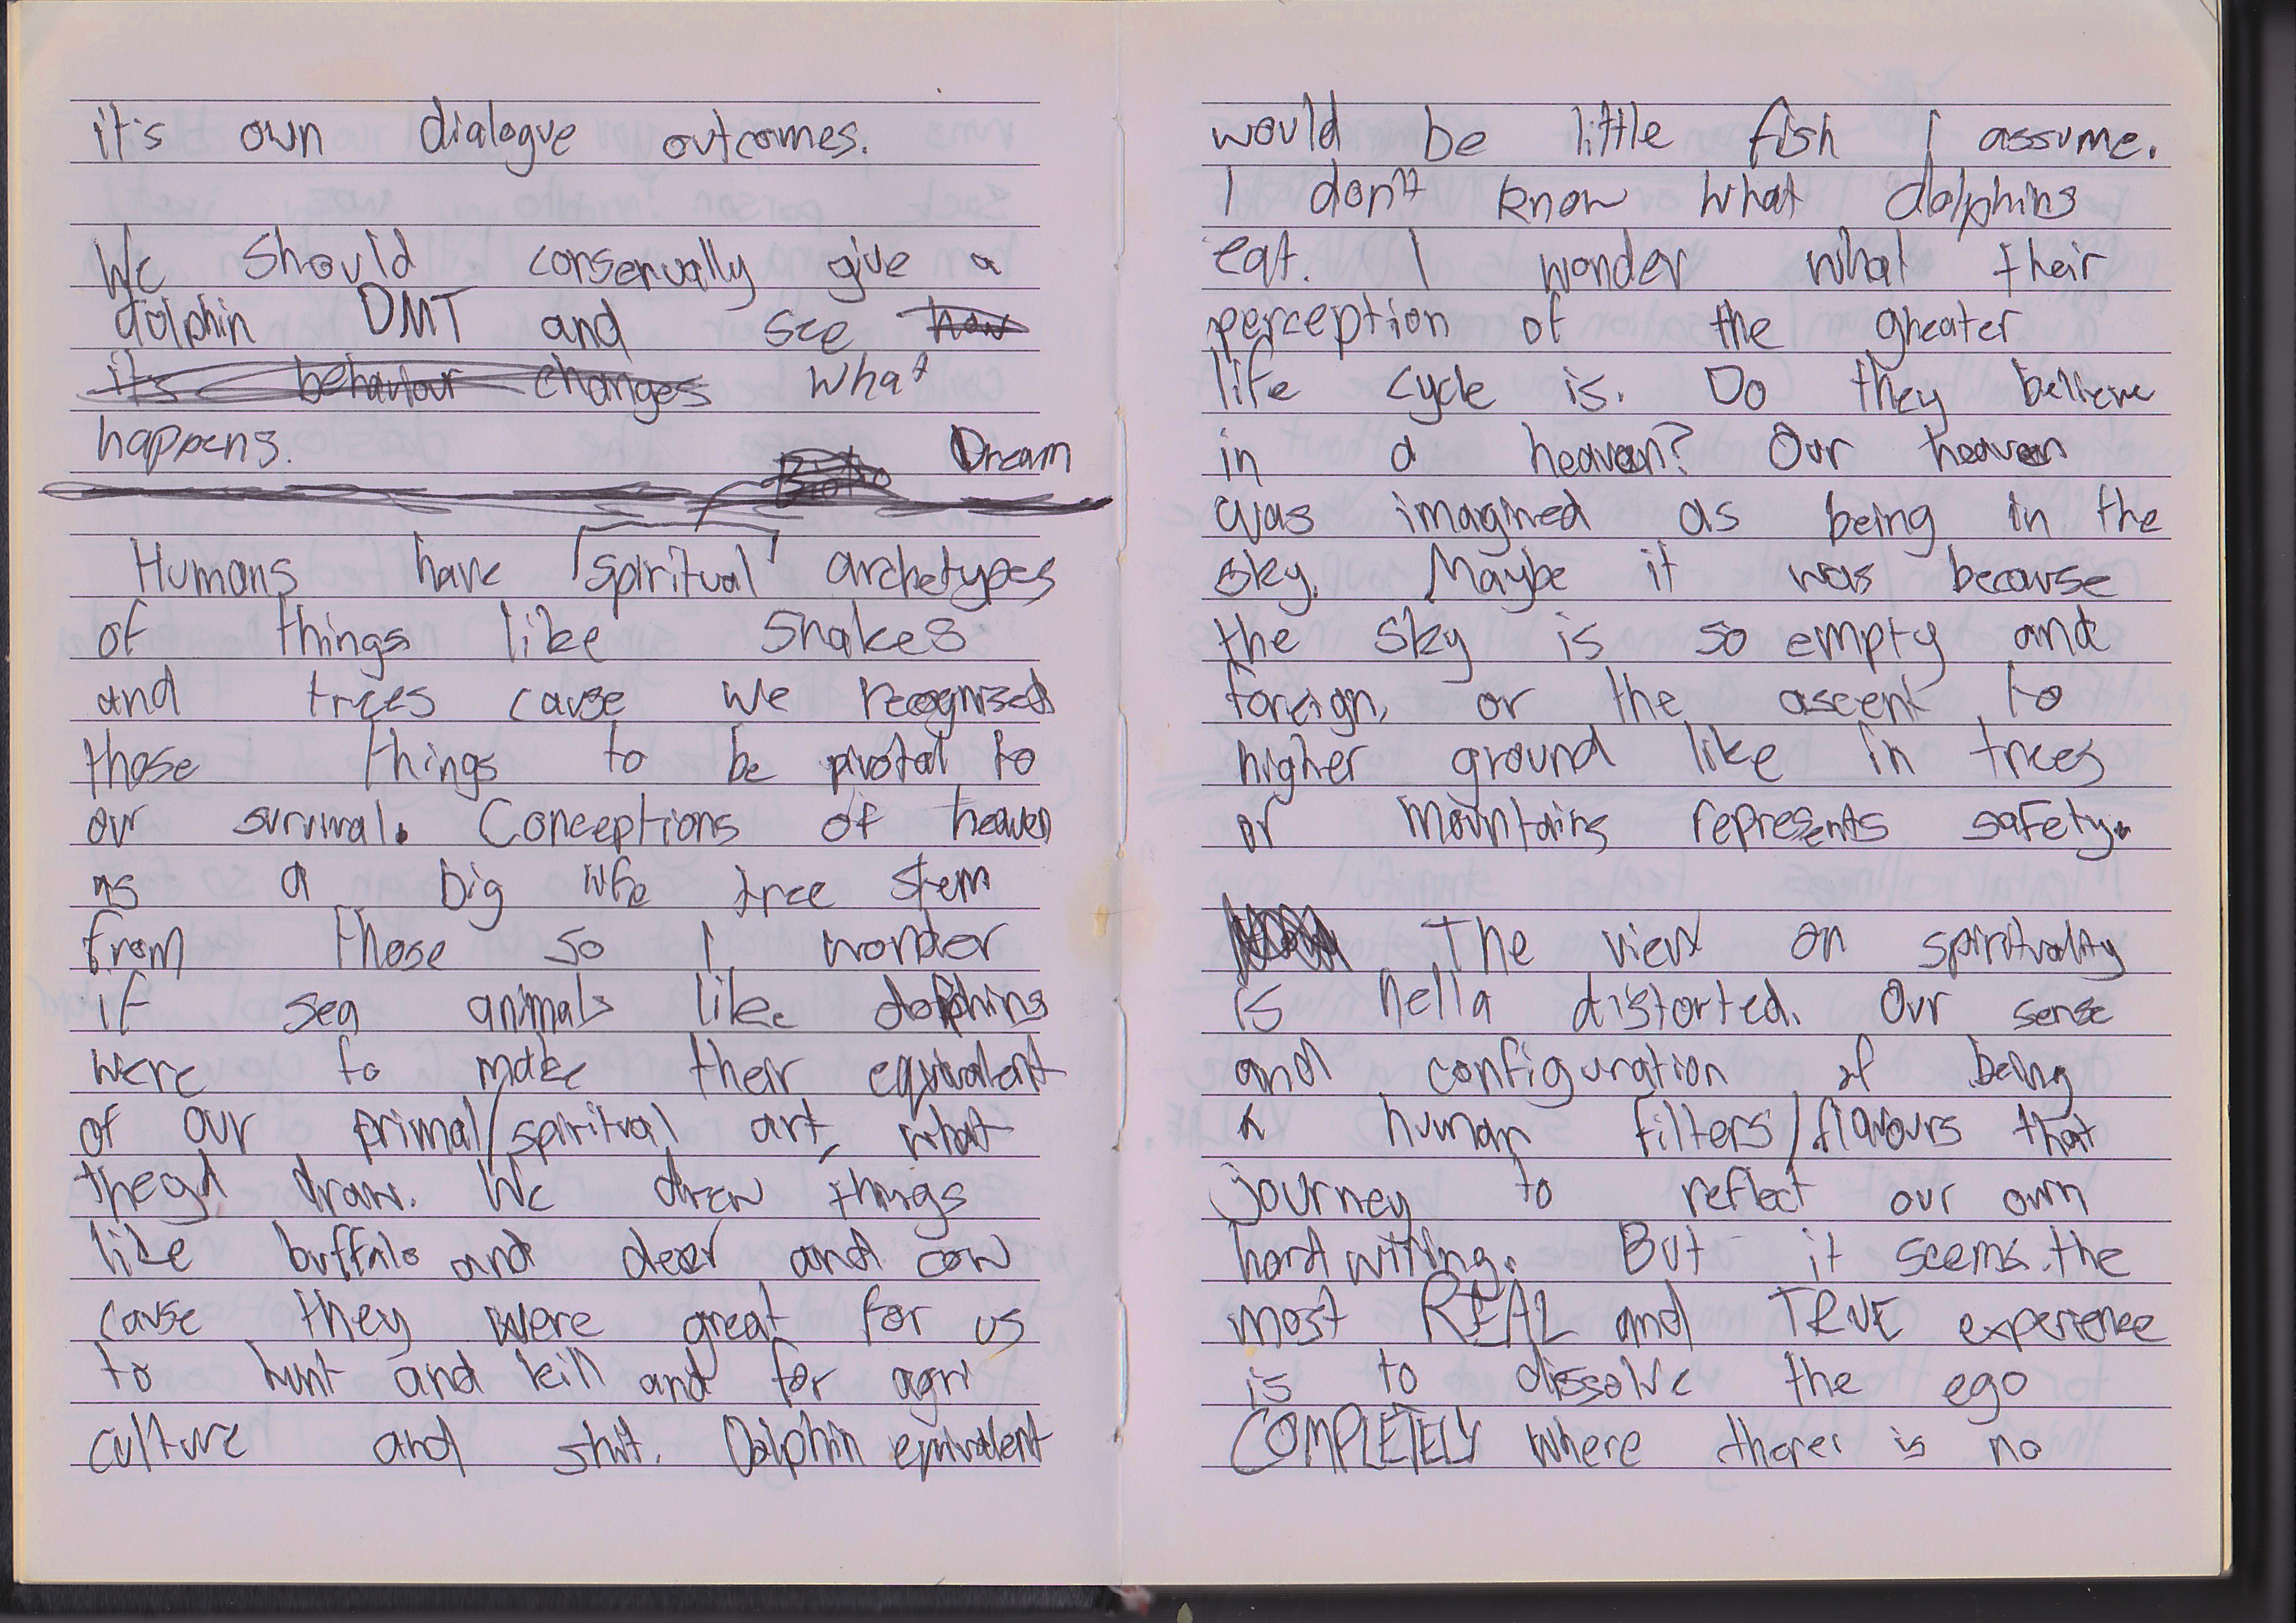 it's own dialogue outcomes.
We should consenually give a
dolphin DMT and see how
its behaviour changes what
happens.
Dream
Humans have "spiritual" archetypes
of things like snakes
and trees cause we recognized
those things to be pivotal to
our survival. Conceptions of heaven
as a big tree stem
from those so I wonder
if sea animals like dolphins
were to make their equivalent
of our primal/spiritual art, what
they'd draw. We drew things
like buffalo and deer and cow
cause they were great for us
to hunt and kill and for agri
culture and shit. Dolphin equivalent
would be little fish I assume.
I don't know what dolphins
eat. I wonder what their
perception of the gheater
life cycle is. Do they believe
in a heaven? Our heaven
was imagined as being in the
sky. Maybe it was because
the sky is so empty and
foreign, or the ascent to
higher ground like in trees
or mountains represents safety.
The view on spirituality
is hella distorted. Our sense
and configuration of being
a human filters/flavours that
journey to reflect our own
hand writing. But it seems the
most REAL and TRUE experience
is to dissolve the ego
COMPLETELY where there is no